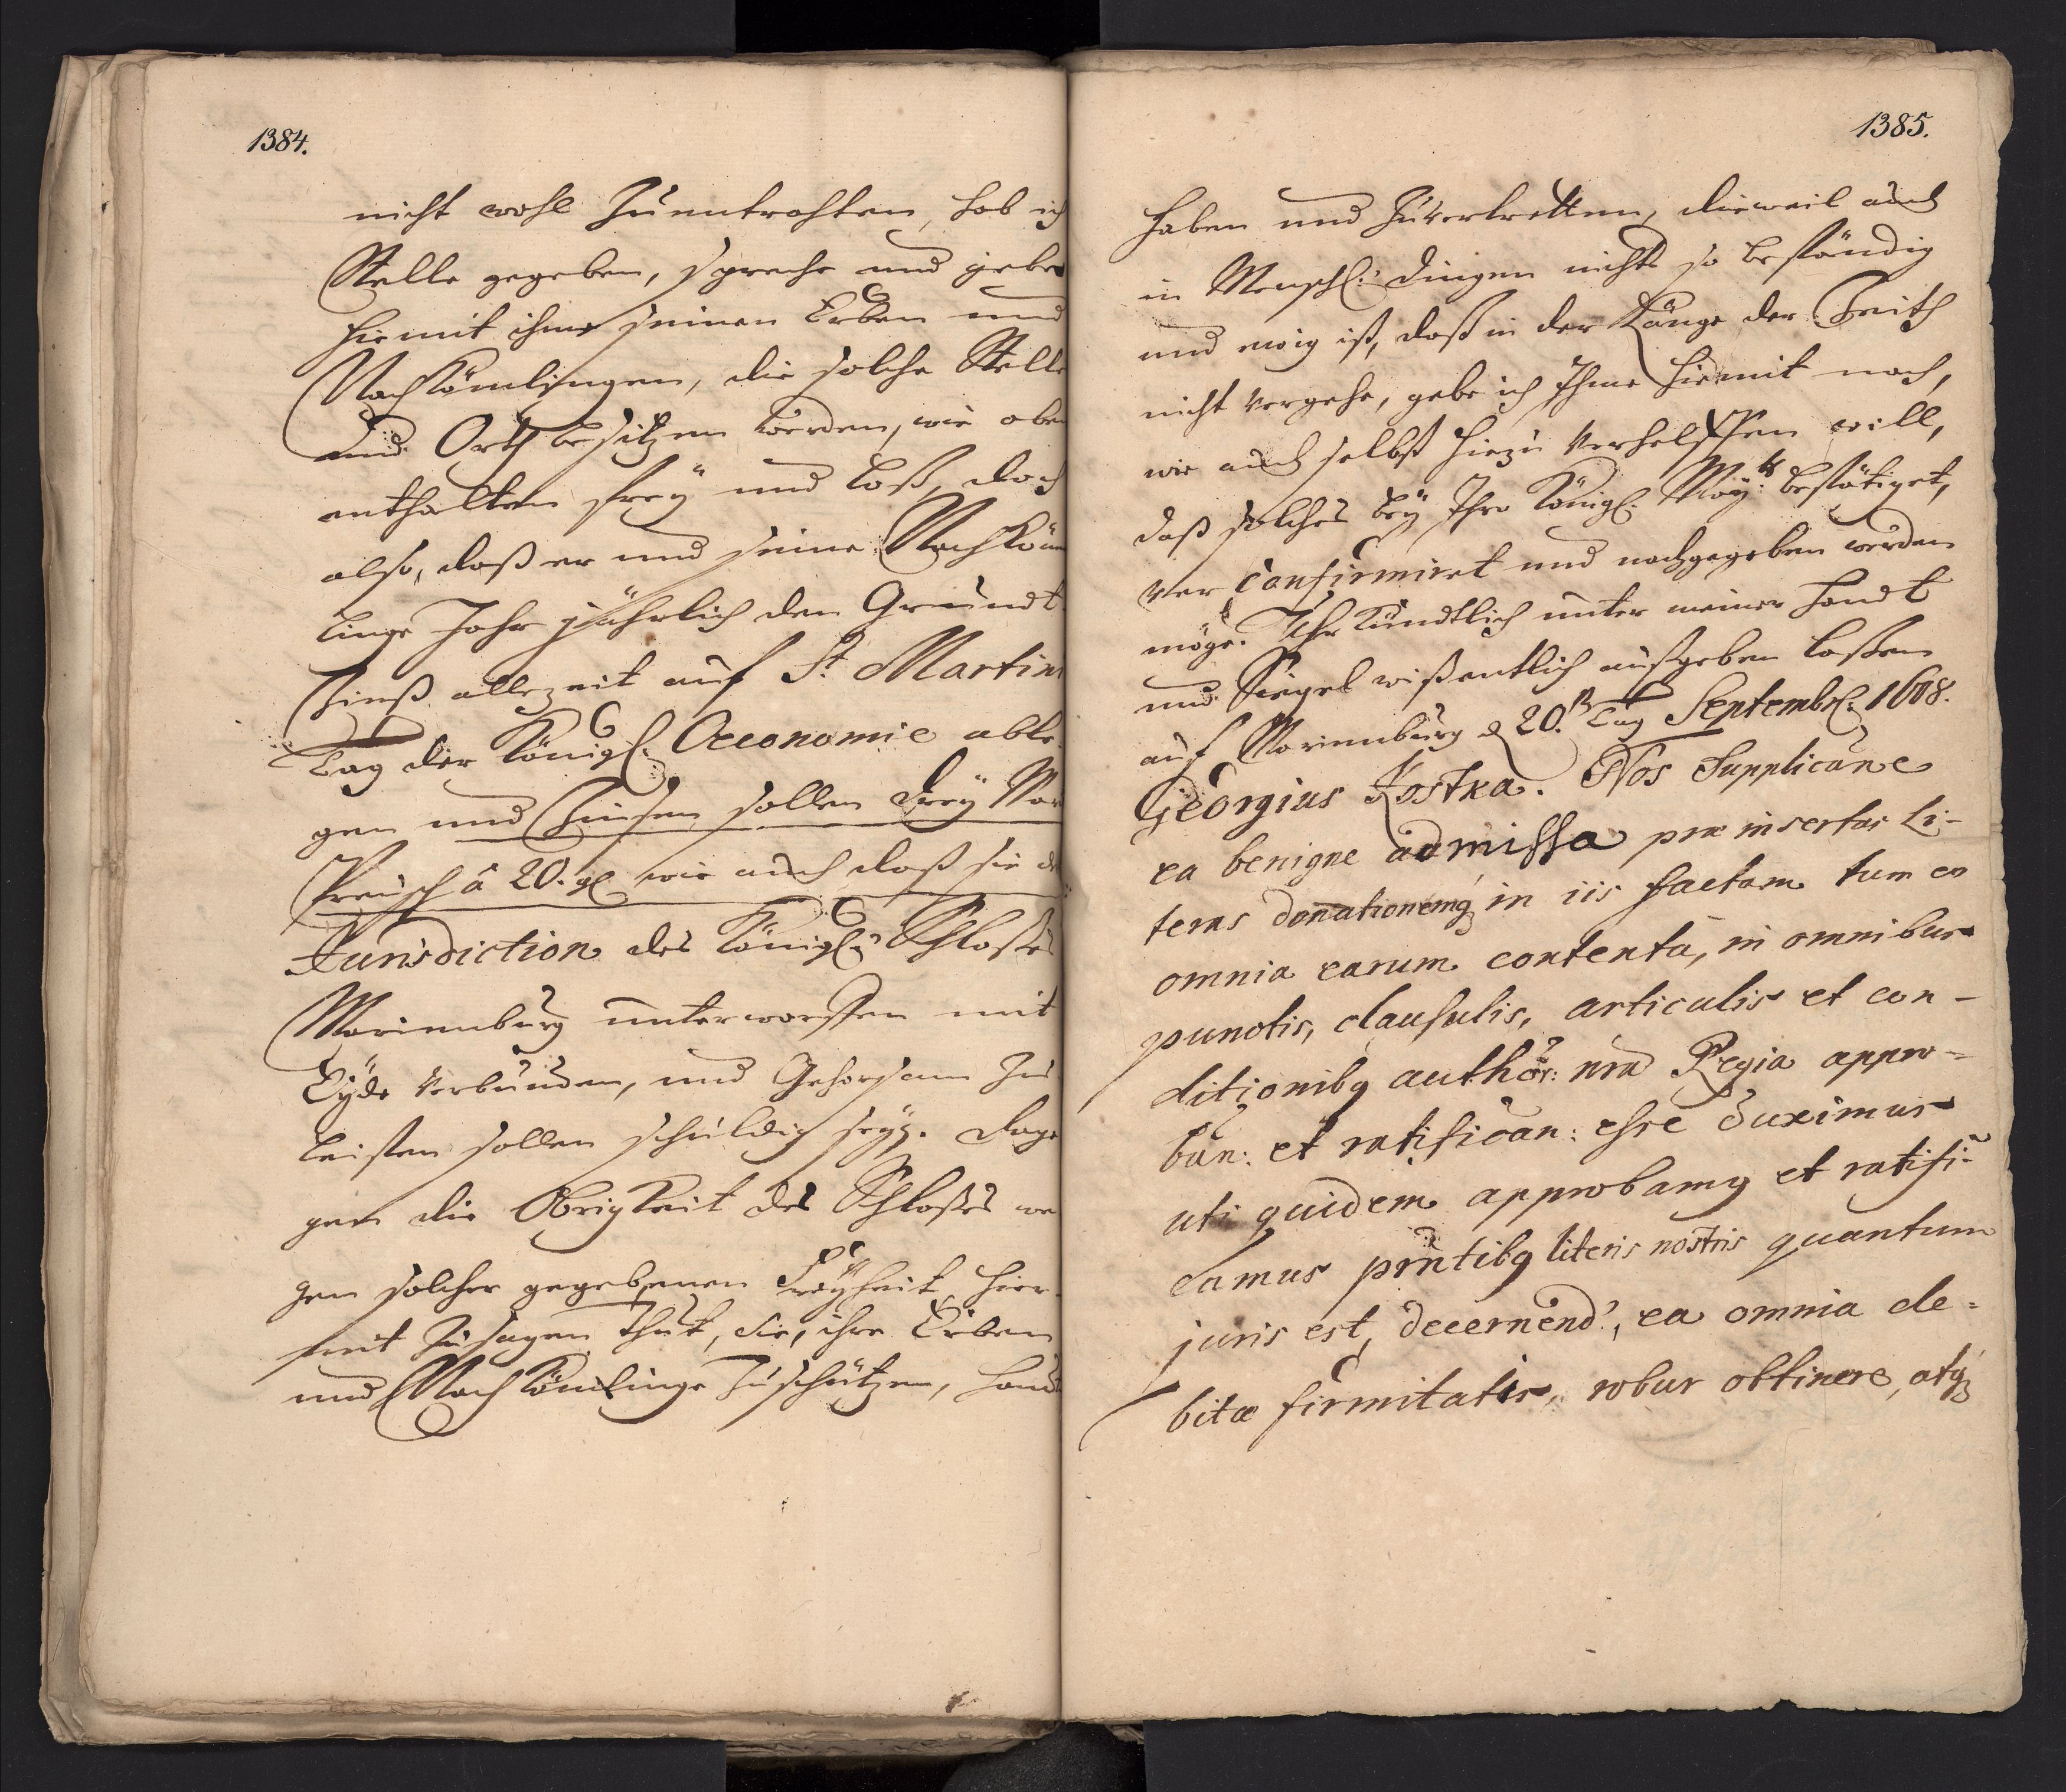 1384.
nicht wohl zu entrahten, hab ich
Stelle gegeben, spreche und gebe
hiemit ihme seinen Erben und
Nachkömlingen, die solche Stelle
und Orth besitzen werden, wie oben
enthalten frey und loß, doch
also, daß er und seine Nachköm
linge Jahr jährlich den Grundt
Zinß allezeit auf St. Martini
Tag der Königl. Oeconomie able-
gen und Zinsen sollen drey Mar
Preusch â 20. gl wie auch daß sie d
Jurisdiction des Königl: Schloßes
Marienburg unterworffen mit
Eyde verbunden, und Gehorsam zu
leisten sollen schuldig seyn. Dage
gen die Obrigkeit des Schloßes we
gen solcher gegebenen Freyheit hier-
mit zusagen thut, sie, ihre Erben
und Nachkömlinge zu schützen, hand
1385.
haben und zuvertretten, dieweil auch
in Menschl: dingen nichts so beständig
und ewig ist, daß in der Länge der Zeith
nicht vergehe, gebe ich Ihme hiemit nach,
wie auch selbst hiezu verhelffen will,
daß solches bey Ihro Königl. May:tt bestätiget,
ver confirmiret und nachgegeben werden
möge. Uhrkundtlich unter meiner Handt
und Siegel wißentlich außgeben laßen
auf Marienburg d 20. Tag Septembr: 1608.
Georgius Kostka. Nos Supplicane
ea benigne admissa præ insertas Li-
teras donationemq in iis factam tum eo
omnia earum contenta, in omnibus
punctis, clausulis, articulis et con-
ditionibq author: nra Regia appro-
ban: et ratifican: esse duximus
uti quidem approbamq et ratifi-
camus prntibq literis nostris quantum
juris est, decernend', ea omnia de=
bitæ firmitatis, robur obtinere, atq